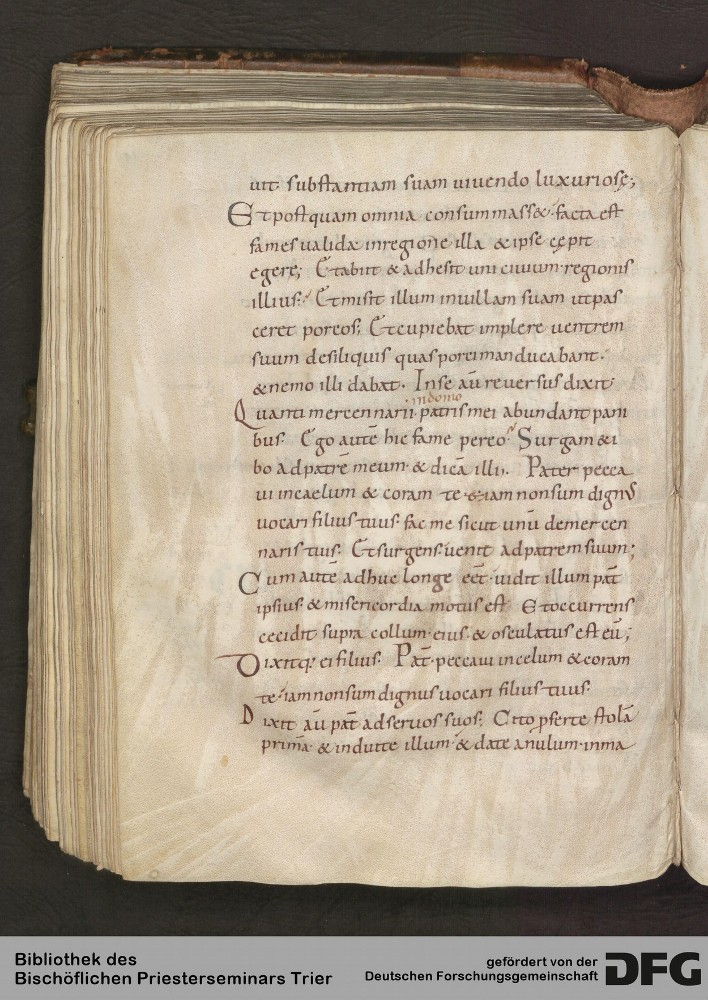 uit substantiam suam uiuendo luxuriose;
Et postquam omnia consummass& facta est
fames ualida inregione illa & ipse cępit
egere; Et abiit & adhesit uni ciuium regionis
illius. Et misit illum inuillam suam ut pas
ceret porcos; Et cupiebat implere uentrem
suum desiliquis quas porci manducabant.
& nemo illi dabat. Inse aū reuersus dixit.
in domo
Quanti mercennarii patris mei abundant pani
bus. Ego autē hic fame pereo. Surgam & i
bo ad patrē meum & dicā illi. Pater pecca
ui incaelum & coram te & iam non sum dignus
uocari filius tuus. fac me sicut unū demercen
nariis tuis. Et surgens uenit ad patrem suum;
Cum autē adhuc longe eēt uidit illum pat̄
ipsius & misericordia motus est. Et occurrens
cecidit supra collum eius & osculatus est eū;
Dixitq; ei filius. Pat̄ peccaui incelum & coram
te. iam non sum dignus uocari filius tuus.
Dixit aū pat̄ ad seruos suos; Cito ꝓferte stolā
primā & induite illum & date anulum inma
Bibliothek des
Bischöflichen Priesterseminars Trier
gefördert von der
Deutschen Forschungsgemeinschaft
DFG